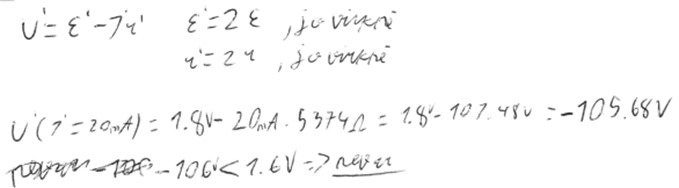 U' = ε' - I'r' ε' = 2ε , jo virknē
r' = 2r , jo virknē
U'(I' = 20mA) = 1.8V - 20mA · 5374Ω = 1.8V - 107.48V = -105.68V
-106V < 1.6V => nevar